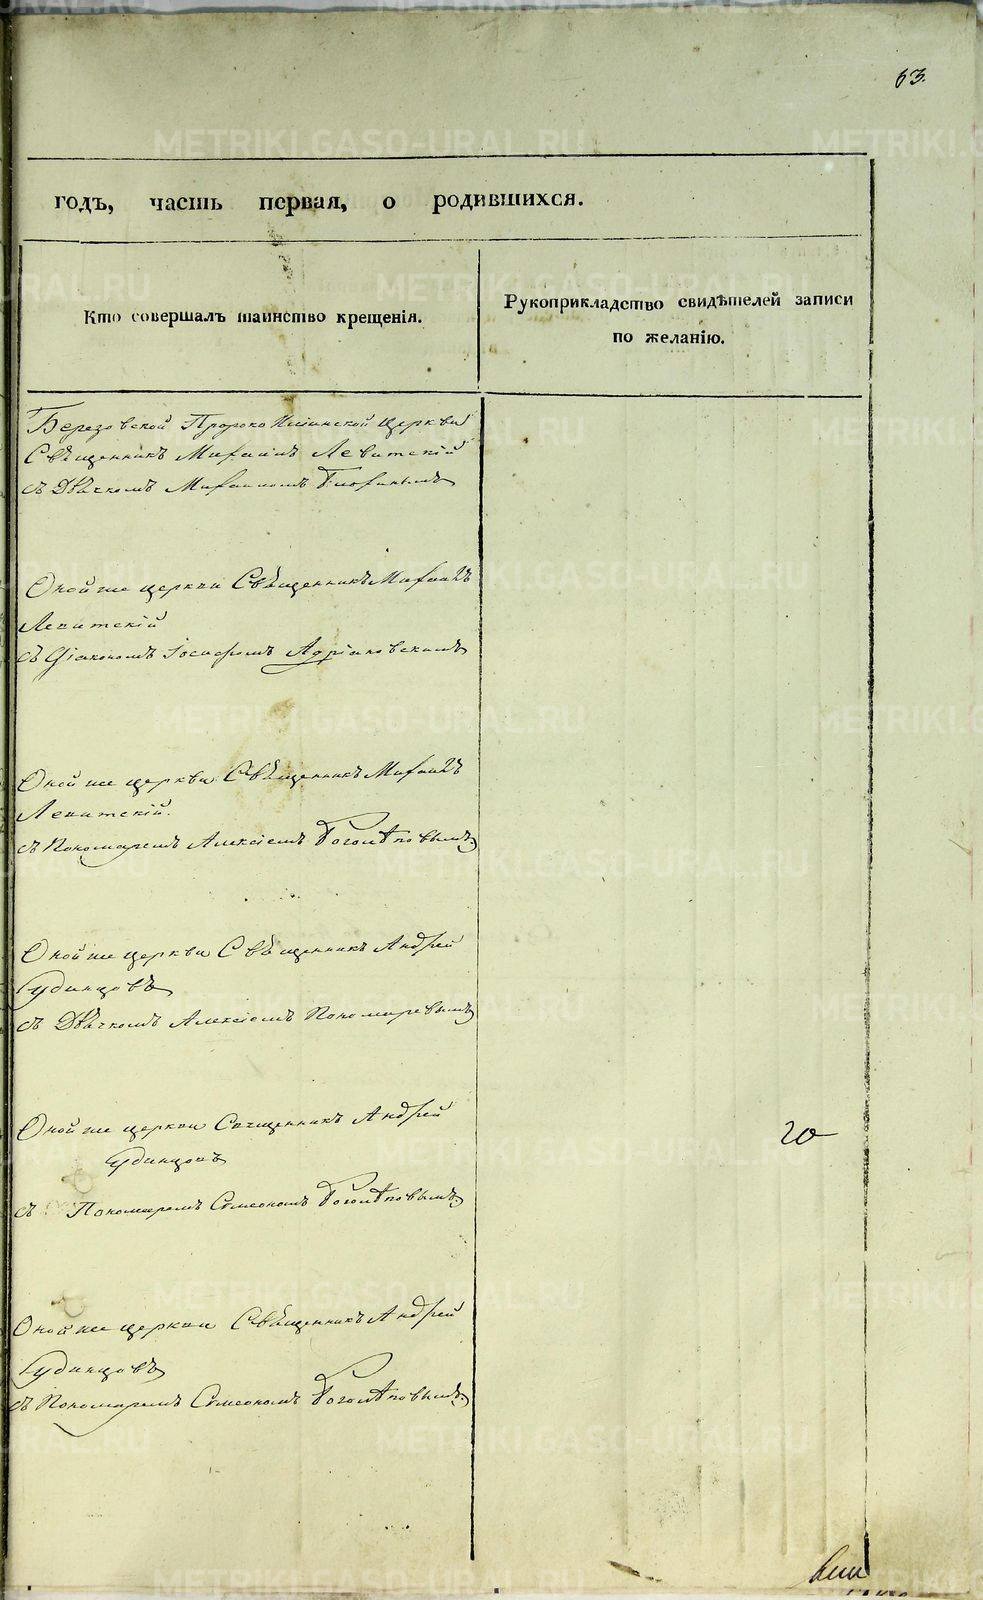 63.
годъ, часть первая, о родившихся.
Кто совершалъ таинство крещенія.
Рукоприкладство свидѣтелей записи
по желанію.
Березовской Пророко Ильинской церкви
Священникъ Михаилъ Левитскій
съ Дьячкомъ Михаиломъ
Оной же церкви Священникъ Михаилъ
Левитскій
съ Діакономъ Іосафомъ Адріановскимъ
Оной же церкви Священникъ Михаилъ
Левитскій.
съ Пономаремъ Алексіемъ Боголѣповымъ.
Оной же церкви Священникъ Андрей
Удинцовъ
съ Дьячкомъ Алексіемъ Пономаревымъ
Оной же церкви Священникъ Андрей
Удинцовъ
съ Пономаремъ Симеономъ Боголѣповымъ.
20
Оной же церкви Священникъ Андрей
Удинцовъ
съ Пономаремъ Симеономъ Боголѣповымъ.
METRIKI.GASO-URAL.RU